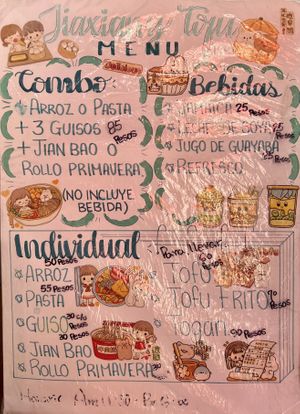 Jiaxiang y Tofu
MENU
Combo:
+ ARROZ O PASTA
+ 3 GUISOS 85 PESOS
+ JIAN BAO O
ROLLO PRIMAVERA
(NO INCLUYE
BEBIDA)
Bebidas
JAMAICA 25 PESOS
LECHE DE SOYA 25 PESOS
JUGO DE GUAYABA
25 PESOS
REFRESCO
Individual
50 PESOS
ARROZ
55 PESOS
PASTA
GUISO 30 c/u PESOS
JIAN BAO 30
ROLLO PRIMAVERA 30 PESOS
Para llevar
TOFU
TOFU FRITO 70 PESOS
90 PESOS